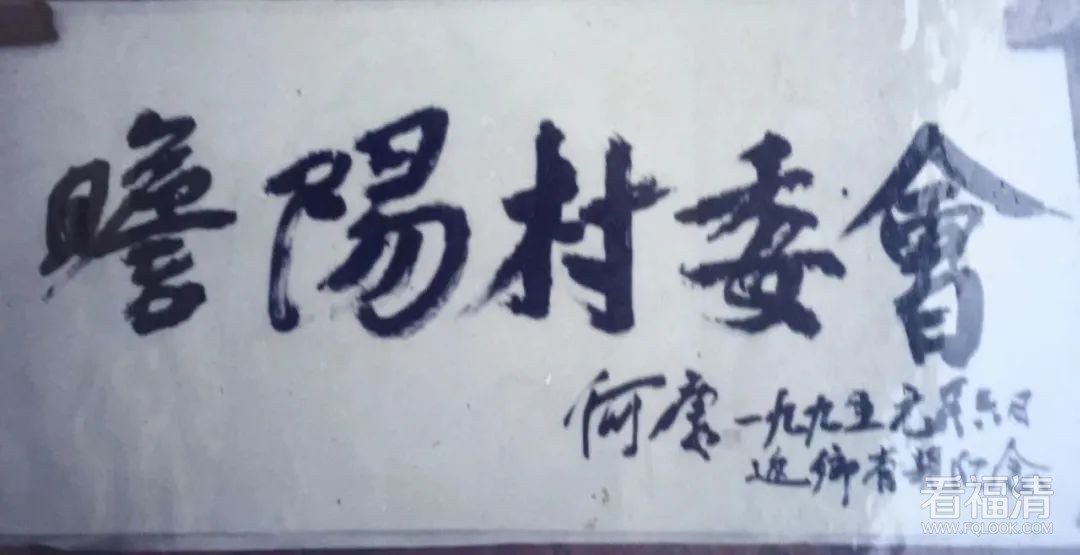 瞻陽村委會
何康 一九九五元月六日
返鄉省親紀念
看福清
WWW.FQLOOK.COM